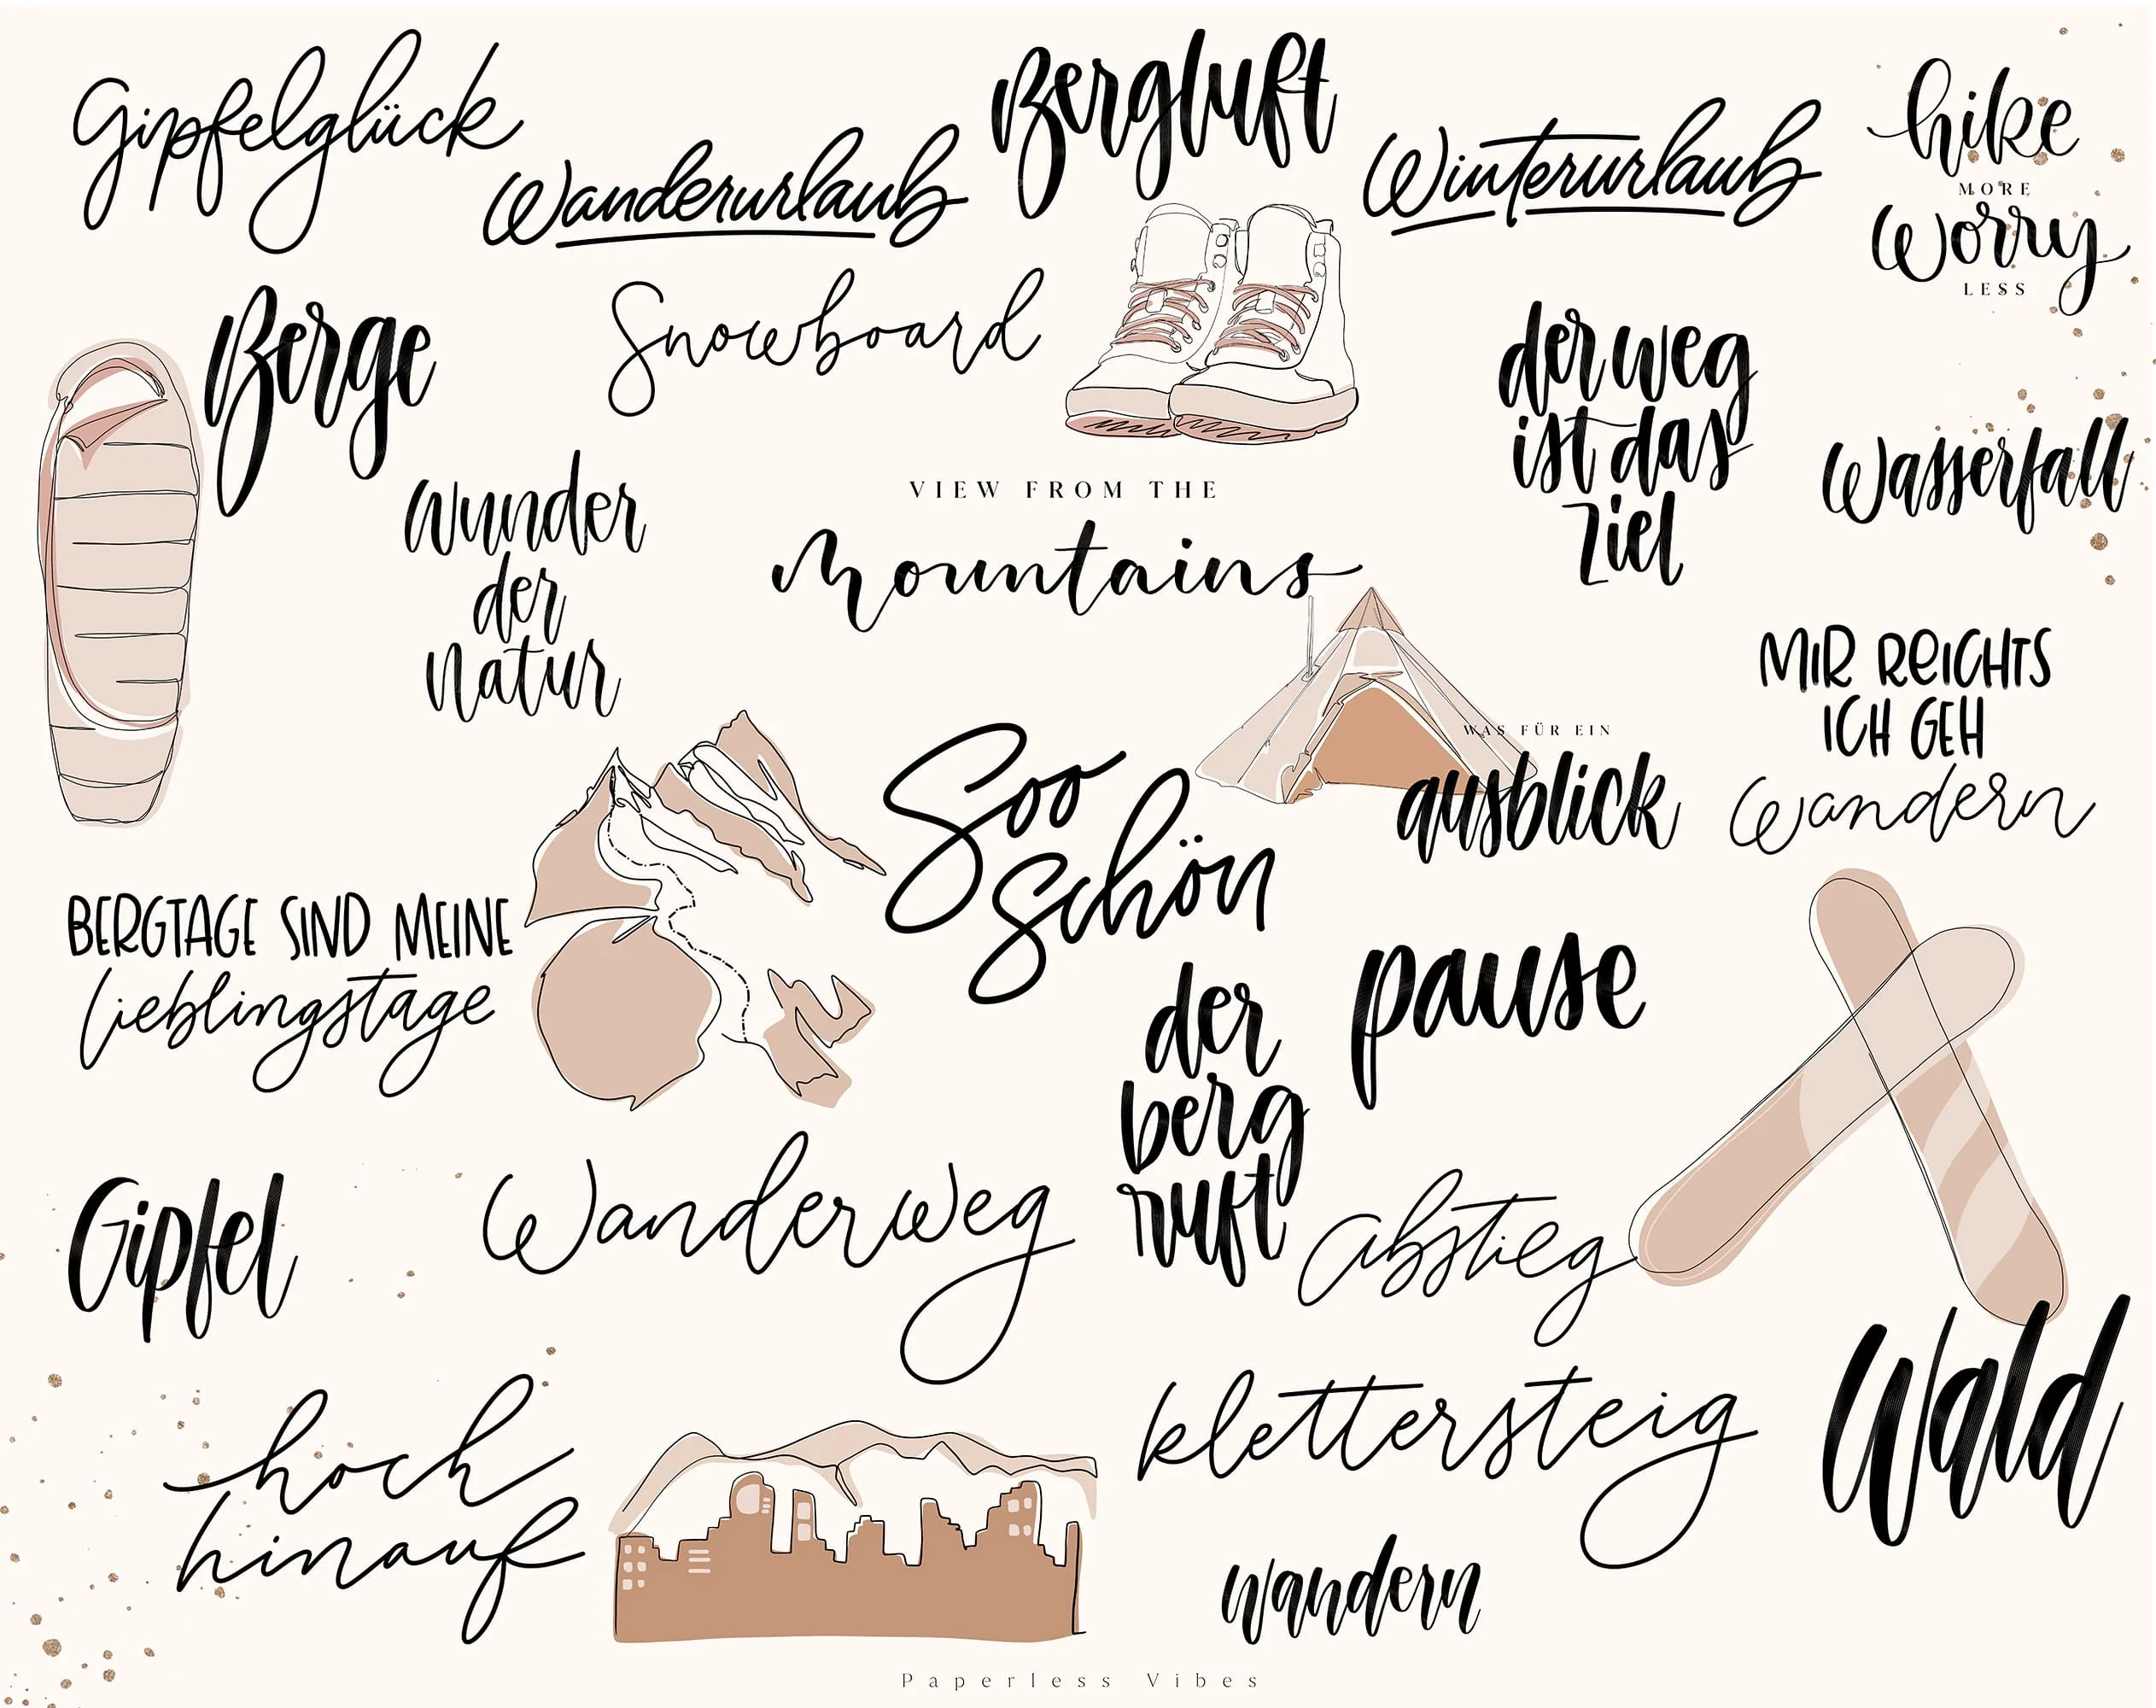 Gipfelglück
Wanderurlaub
Bergluft
Winterurlaub
hike
MORE
Worry
LESS
Berge
Snowboard
der weg
ist das
Ziel
Wasserfall
Wunder
der
Natur
VIEW FROM THE
Mountains
MIR REICHTS
ICH GEH
Wandern
WAS FÜR EIN
ausblick
Soo
Schön
BERGTAGE SIND MEINE
Lieblingstage
pause
der
berg
ruft
Gipfel
Wanderweg
Abstieg
Wald
hoch
hinauf
klettersteig
wandern
Paperless Vibes